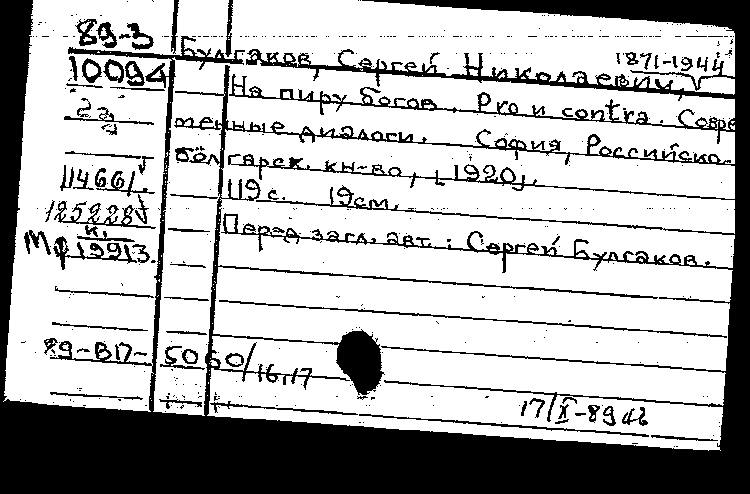 89-3
Булгаков, Сергей Николаевич, 1871-1944
10094
На пиру богов. Pro и contra. Совре
менные диалоги. София, Российско-
болгарск. кн-во, [1920].
114661✓.
119с. 19см.
125228✓
к.
Мф 19913.
Перед загл. авт.: Сергей Булгаков.
89-В17- 5060/16,17
17/X-89